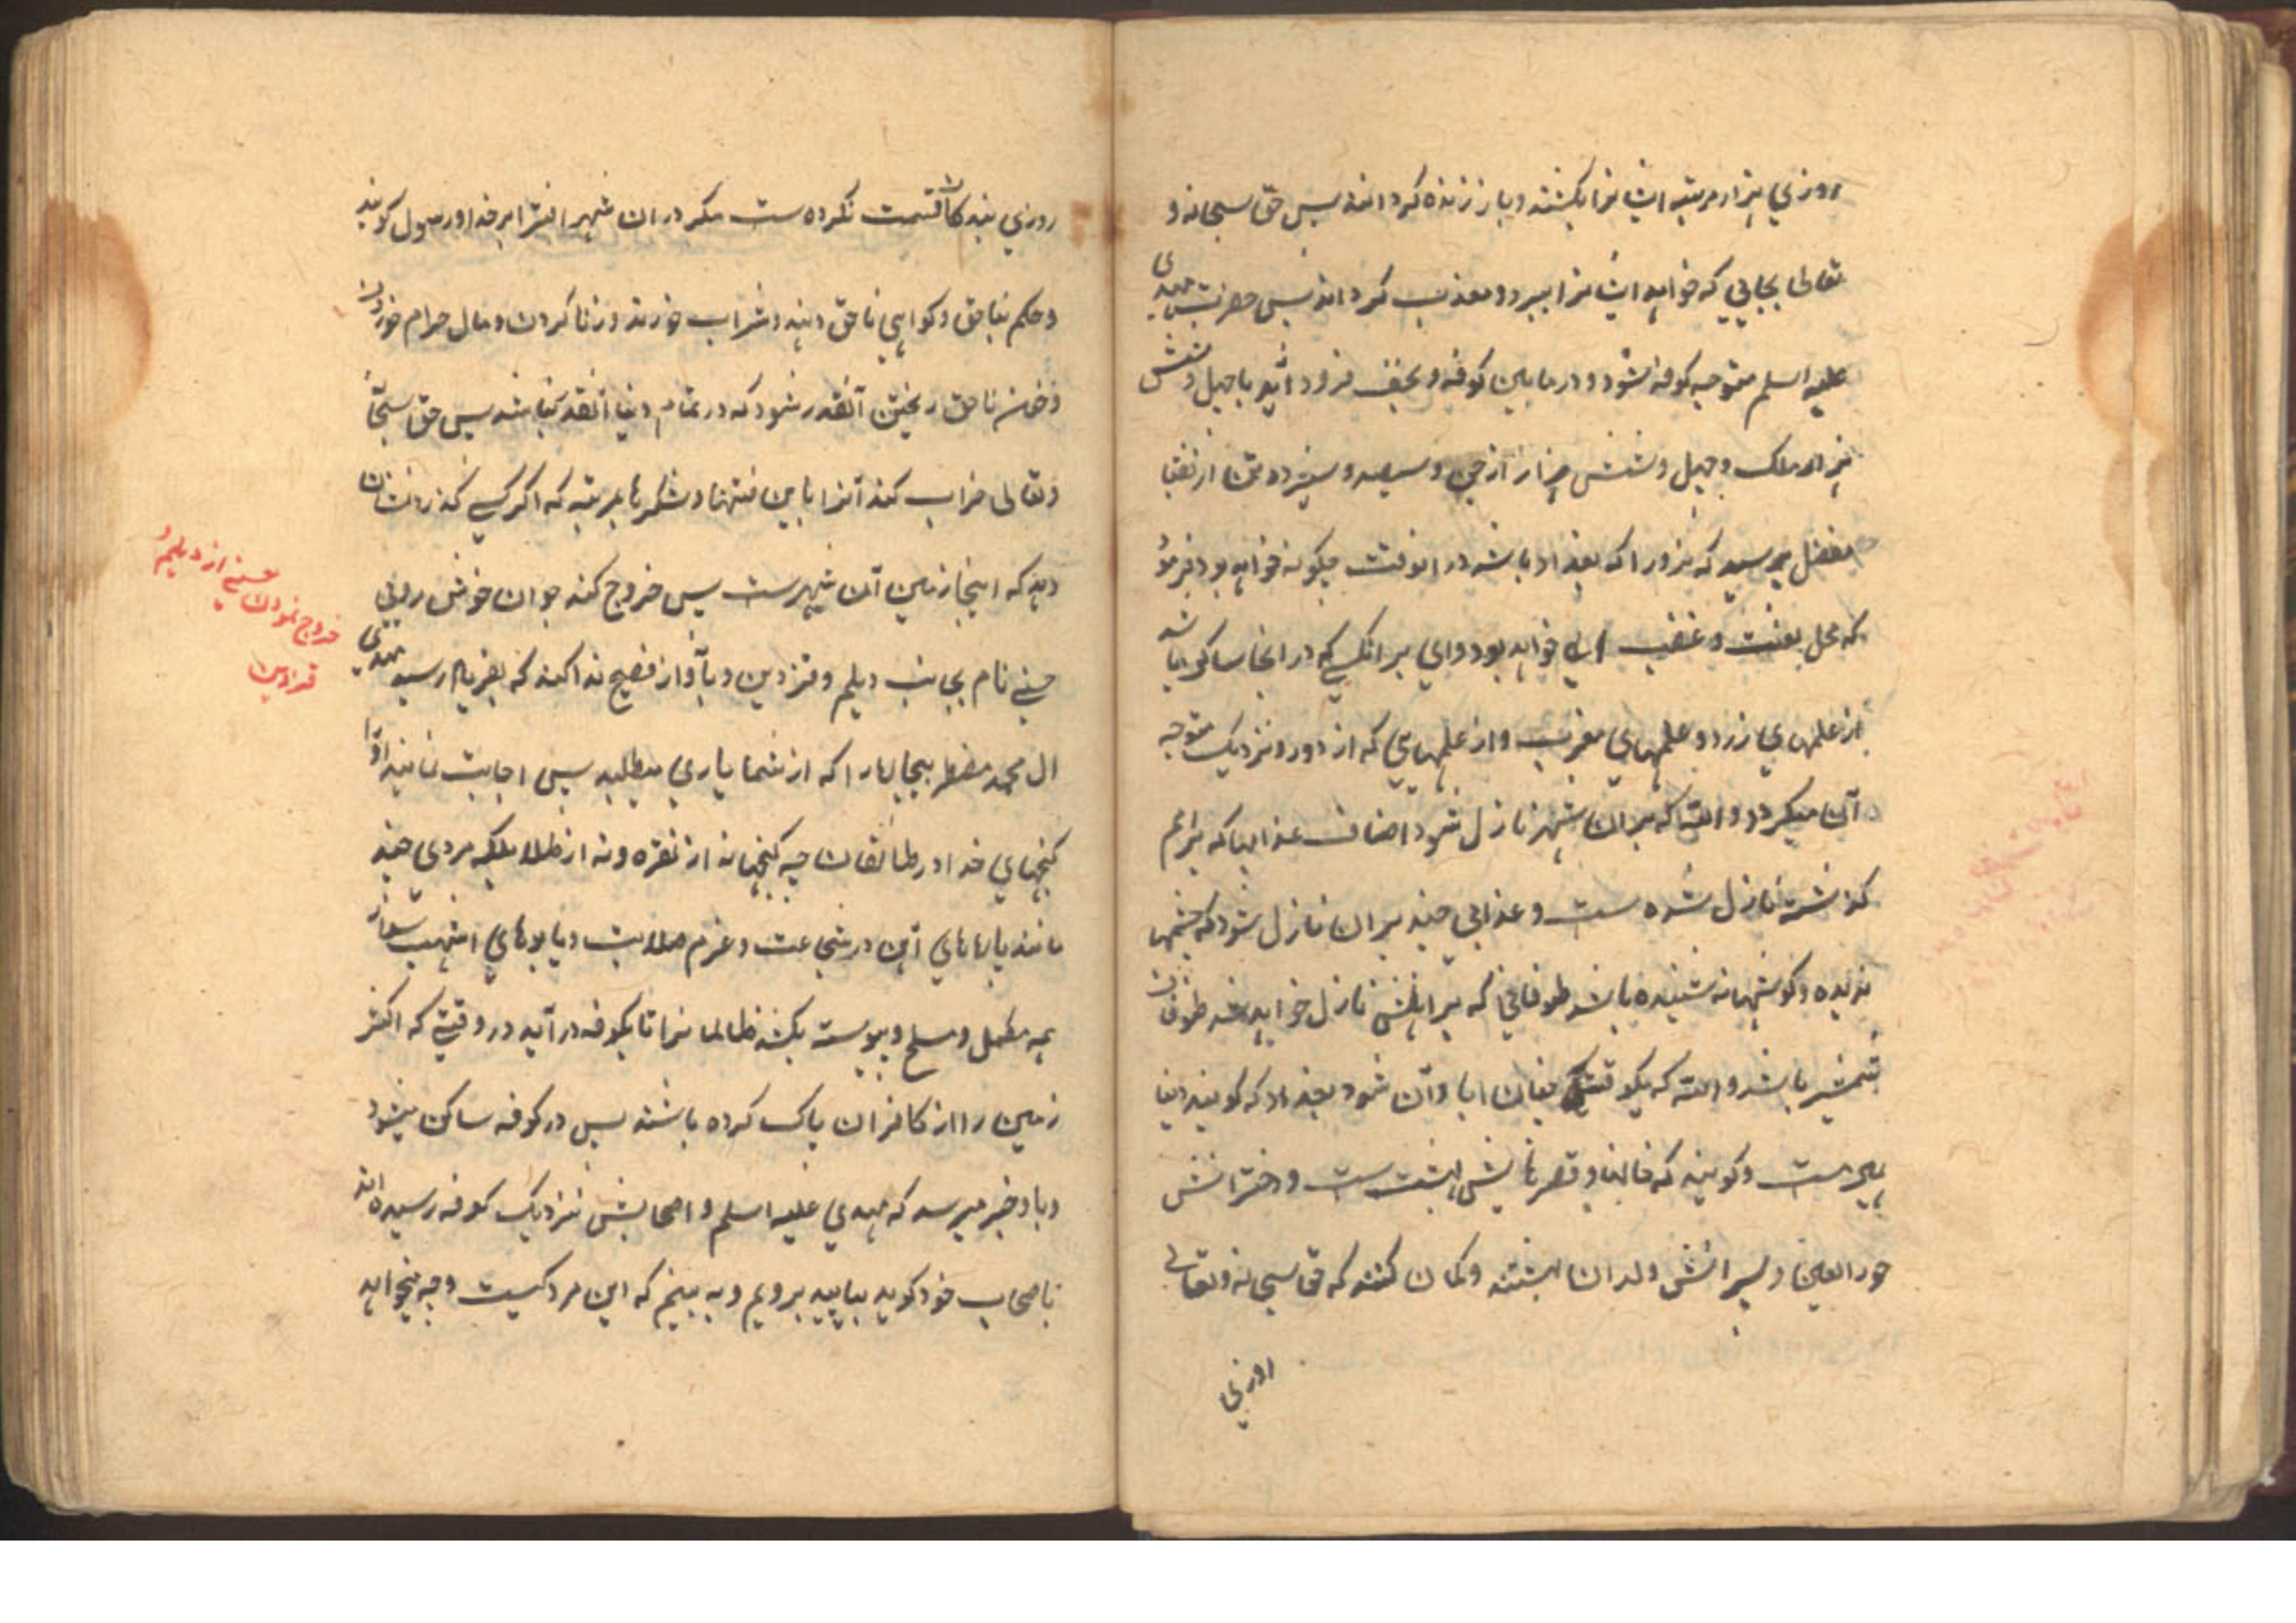 روزي هزار مرتبه ایشانرا بکشند و باز زنده کردانند پس حق سبحانه و
تعالی بجایی که خواهد ایشانرا ببرد و معذب کرداند پس حضرت مهدی
علیه اسلم متوجه کوفه شود و در مابین کوفه و نجف فرود آید با چهل و شش
هزار ملک و چهل و شش هزار از جن و سیصد و سیزده تن از نقبا
مفضل پرسید که زورا که بغداد باشد در انوقت چکونه خواهد بود فرمود
که محل لعنت و غضب الهی خواهد بود و واي بر انکسے که در انجا ساکن باشد
از علمهاي زرد و علمهاي مغرب و از علمهایي که از دور و نزدیک متوجه
آن میکردد والله که بران شهر نازل شود اصناف عذابها که بر امم
کذشته نازل شده ست و عذابي چند بران نازل شود که چشمها
ندیده و کوشها نه شنیده باشد طوفاني که بر اهلش نازل خواهد شد طوفان
شمشیر باشد والله که یکوقتی چنان ابادآن شود بغداد که کویند دنیا
همین ست و کویند که خانها و قصرهایش بهشت ست و دخترانش
حور العین و پسرانش ولدان بهشتند و کمان کنند که حق سبحانه و تعالی
روزي
روزي بندکانش قسمت نکرده ست مکر در ان شهر افترا بر خدا و رسول کویند
و حکم بناحق و کواهي ناحق دهند و شراب خورند و زنا کردن و مال حرام خوردن
و خون ناحق ریختن آنقدر شود که در تمام دنیا آنقدر نباشد پس حق سبحانه
و تعالی خراب کند آنرا باین فتنها و لشکرها بمرتبه که اکر کسے کند نشان
دهد که اینجا زمین آن شهر ست پس خروج کند جوان خوش رویي
حسنے نام بجانب دیلم و قزوین و بآواز فصیح ندا کند که بفریاد رسید مهدي
ال محمد مضطر بیچاره را که از شما یاري میطلبد پس اجابت نمایند اورا
کنجهاي خدا در طالقان چه کنجها نه از نقره و نه از طلا بلکه مردی چند
مانند پارهاي آهن در شجاعت و عزم صلابت و یابوهاي اشهب سوار
همه مکمل و مسلح و پیوسته بکشد ظالمانرا تا بکوفه در آید در وقتی که اکثر
زمین را از کافران پاک کرده باشند پس در کوفه ساکن میشود
و باو خبر میرسد که مهدي علیه اسلم و اصحابش نزدیک کوفه رسیده اند
باصحاب خود کوید بیایید برویم و به بینیم که این مرد کیست و چه میخواهد
خروج نمودن حسنے از دیلم و
قزوین